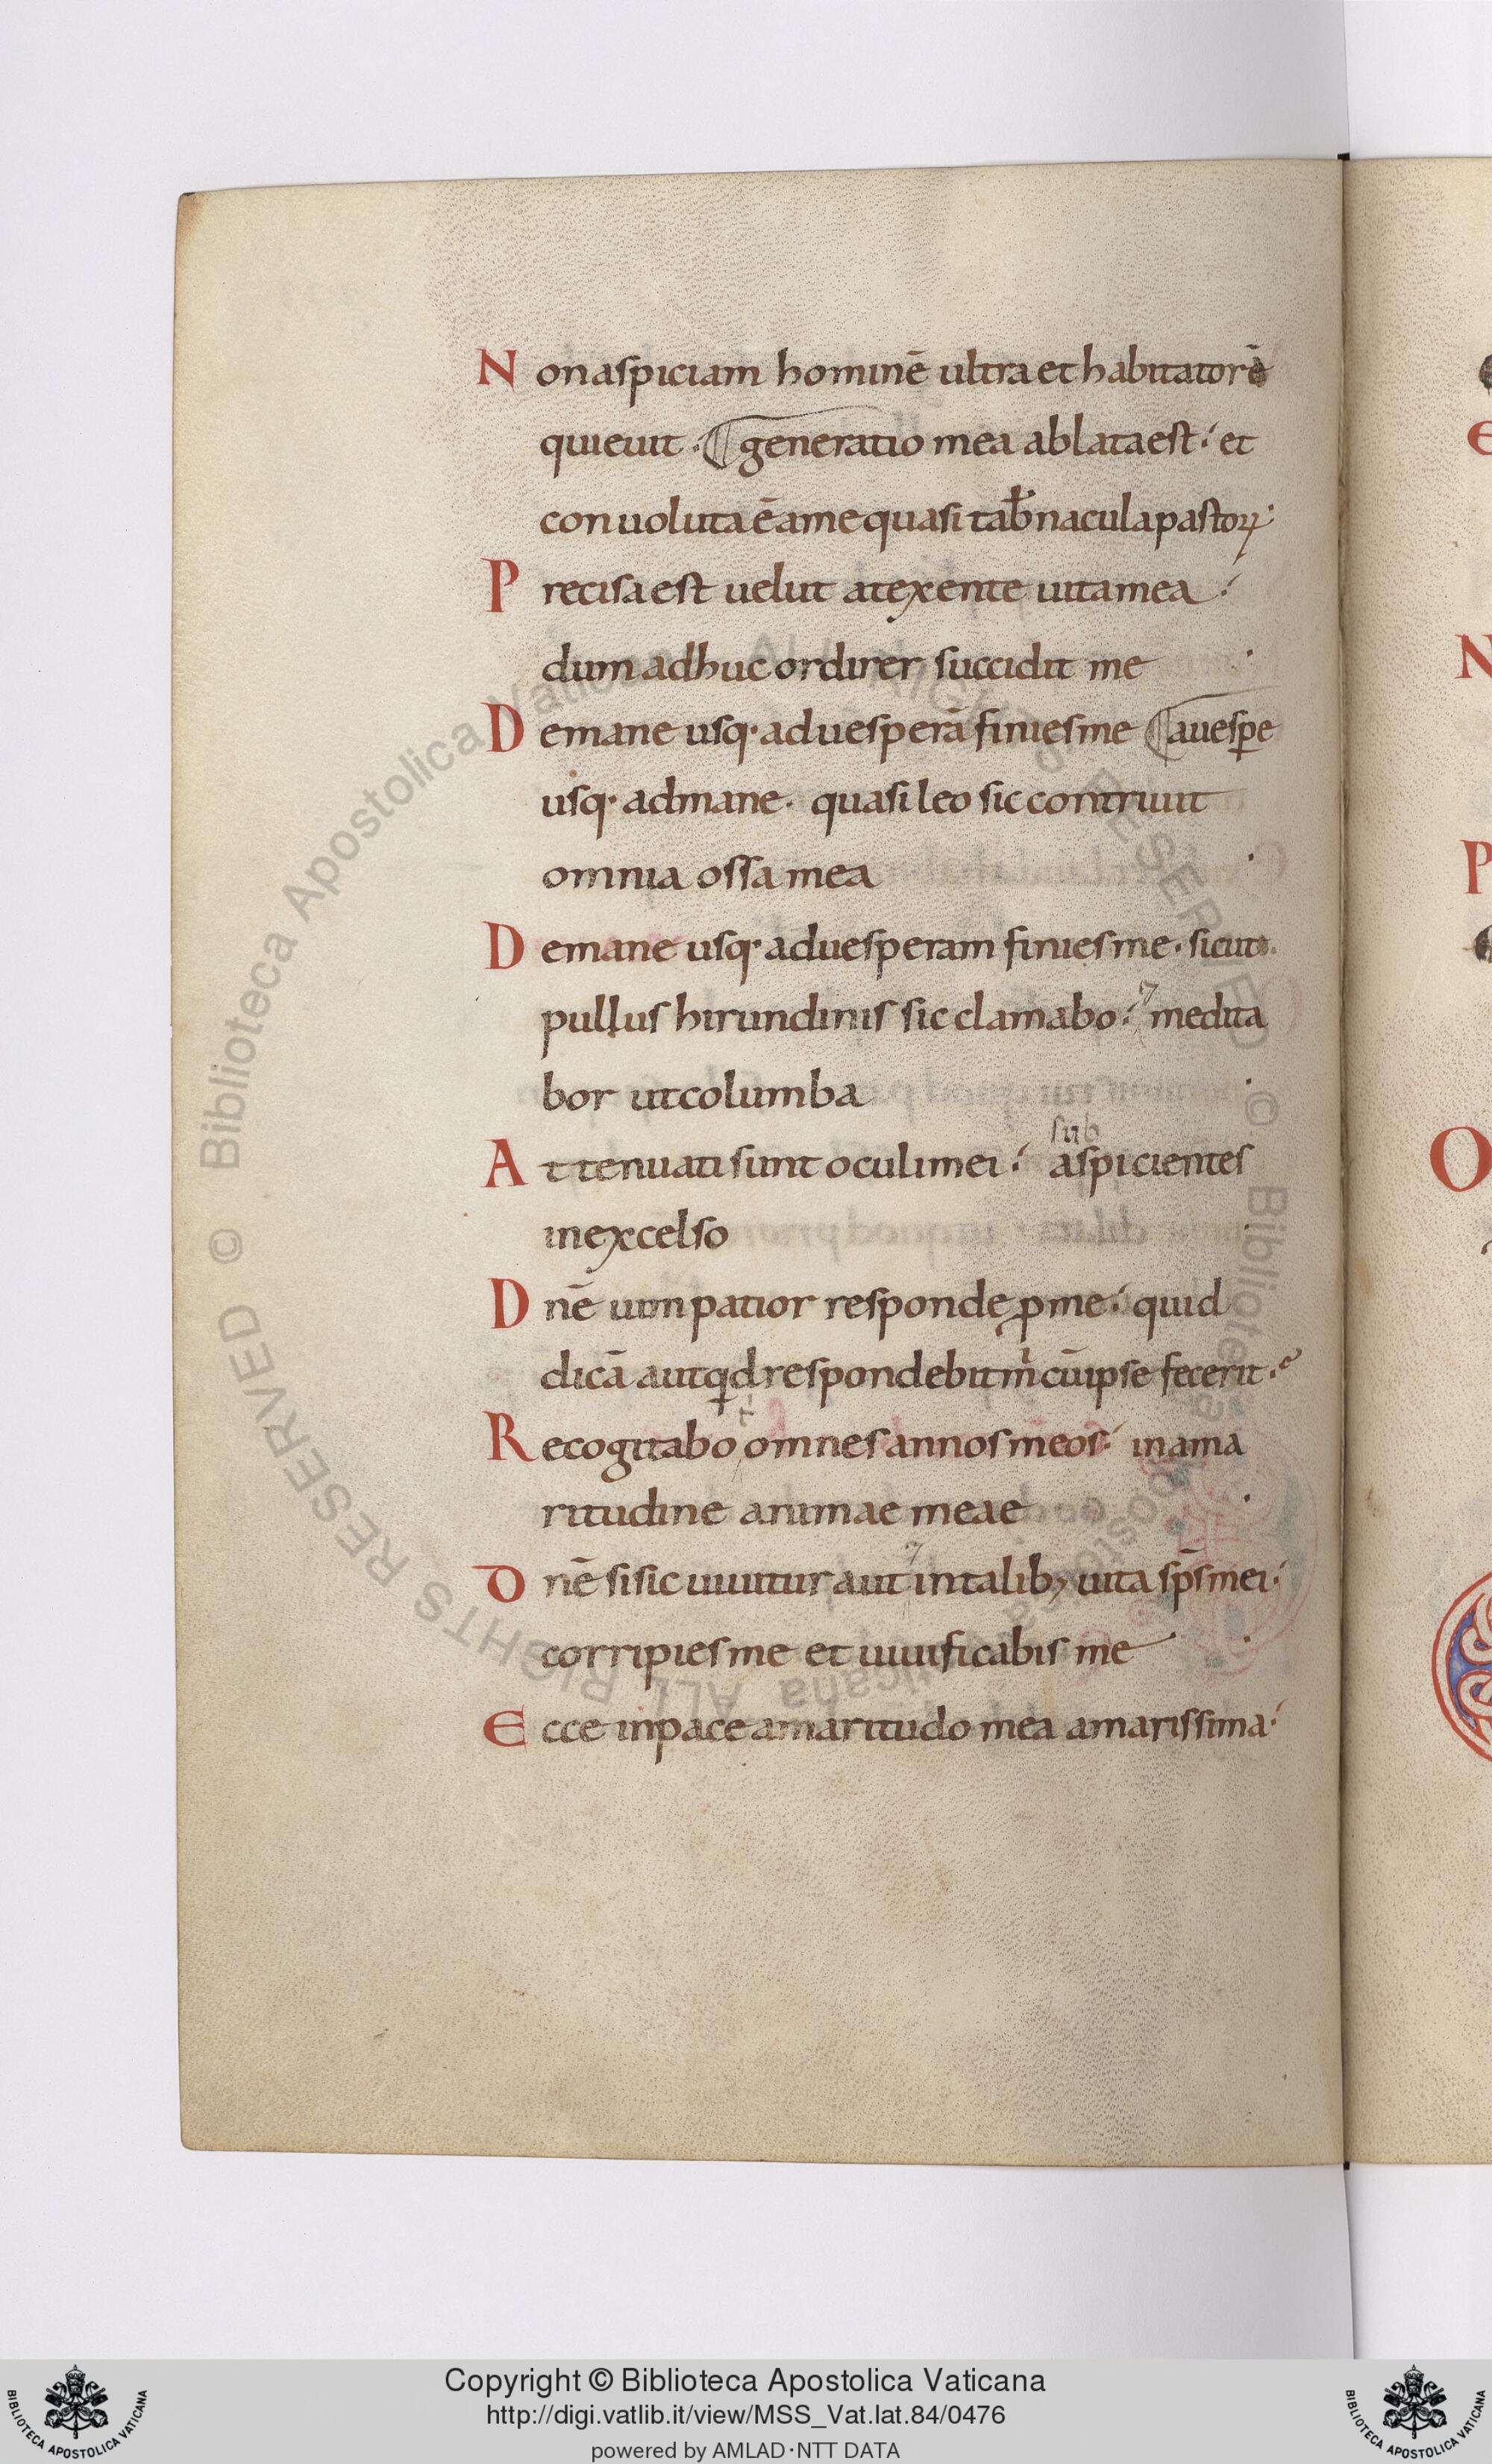 Non aspiciam hominē ultra et habitatorē
quieuit· ¶ generatio mea ablata est· et
conuoluta ē a me quasi tab̄nacula pastoꝝ·
Precisa est uelut a texente uita mea·
dum adhuc ordirer succidit me ·
De mane usq· ad uesperā finies me ¶ a uesꝑe
usq· ad mane· quasi leo sic contriuit
omnia ossa mea ·
De mane usq· ad uesperam finies me· sicut·
pullus hirundinis sic clamabo· ⁊ medita
bor ut columba ·
sub
Attenuati sunt oculi mei· aspicientes
in excelso ·
Dn̄e uim patior responde ꝓ me· quid
dicā aut qid respondebit m̄ cū ipse fecerit·
t
Recogitabo omnes annos meos· in ama
ritudine animae meae ·
⁊
Dn̄e si sic uiuitur aut in talibꝫ uita sp̄s mei·
corripies me et uiuificabis me ·
Ecce in pace amaritudo mea amarissima·
E
N
P
O
© Biblioteca Apostolica Vaticana ALL RIGHTS RESERVED © Biblioteca Apostolica Vaticana ALL RIGHTS RESERVED
BIBLIOTECA APOSTOLICA VATICANA
Copyright © Biblioteca Apostolica Vaticana
http://digi.vatlib.it/view/MSS_Vat.lat.84/0476
powered by AMLAD·NTT DATA
BIBLIOTECA APOSTOLICA VATICANA